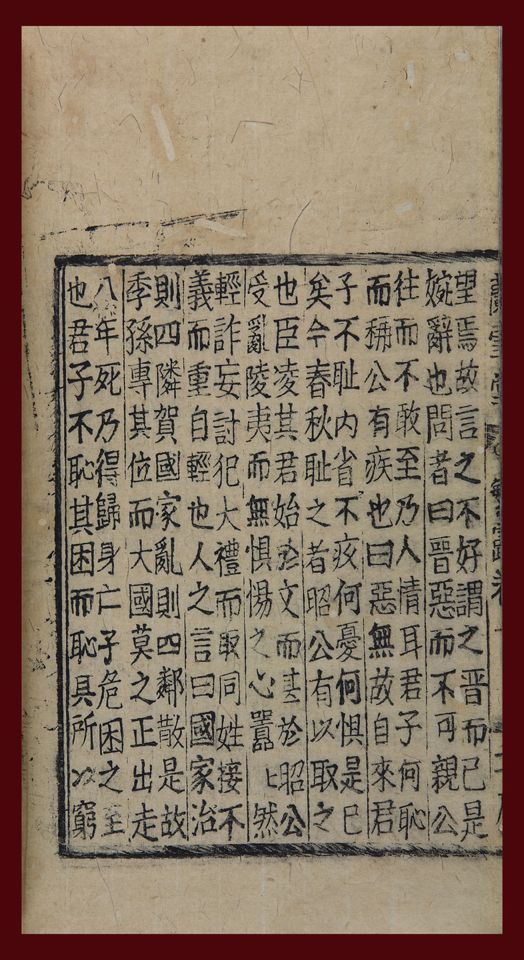 望焉故言之不好謂之晉而已是
婉辭也問者曰晉惡而不可親公
往而不敢至乃人情耳君子何恥
而稱公有疾也曰惡無故自來君
子不耻内省不疚何憂何懼是已
矣今春秋耻之者昭公有以取之
也臣凌其君始於文而甚於昭公
受亂陵夷而無懼惕之心囂〻然
輕詐妄討犯大禮而取同姓接不
義而重自輕也人之言曰國家治
則四隣賀國家亂則四鄰散是故
季孫專其位而大國莫之正出走
八年死乃得歸身亡子危困之至
也君子不恥其困而恥其所以窮